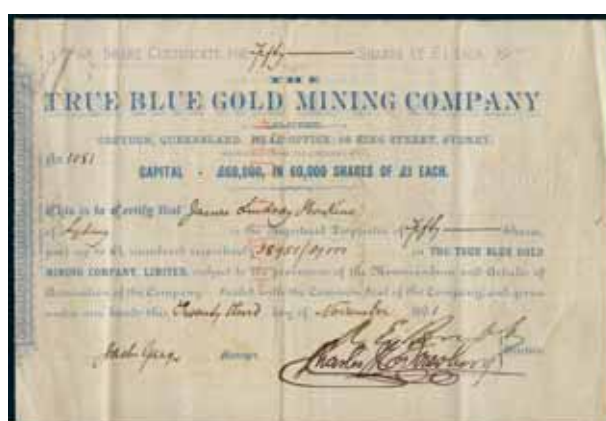 SHARE CERTIFICATE FOR Fifty SHARES OF £1 EACH.
THE
TRUE BLUE GOLD MINING COMPANY
LIMITED.
CROYDON, QUEENSLAND. HEAD OFFICE: KING STREET, SYDNEY.
No 1081
CAPITAL - £60,000, IN 60,000 SHARES OF £1 EACH.
This is to Certify that James Lindsay
of Sydney is the Registered Proprietor of Fifty Shares,
paid up to £1, numbered respectively in THE TRUE BLUE GOLD
MINING COMPANY, LIMITED, subject to the provisions of the Memorandum and Articles of
Association of the Company. Sealed with the Common Seal of the Company, and given
under our hands this Twenty third day of November
Manager. Charles Directors